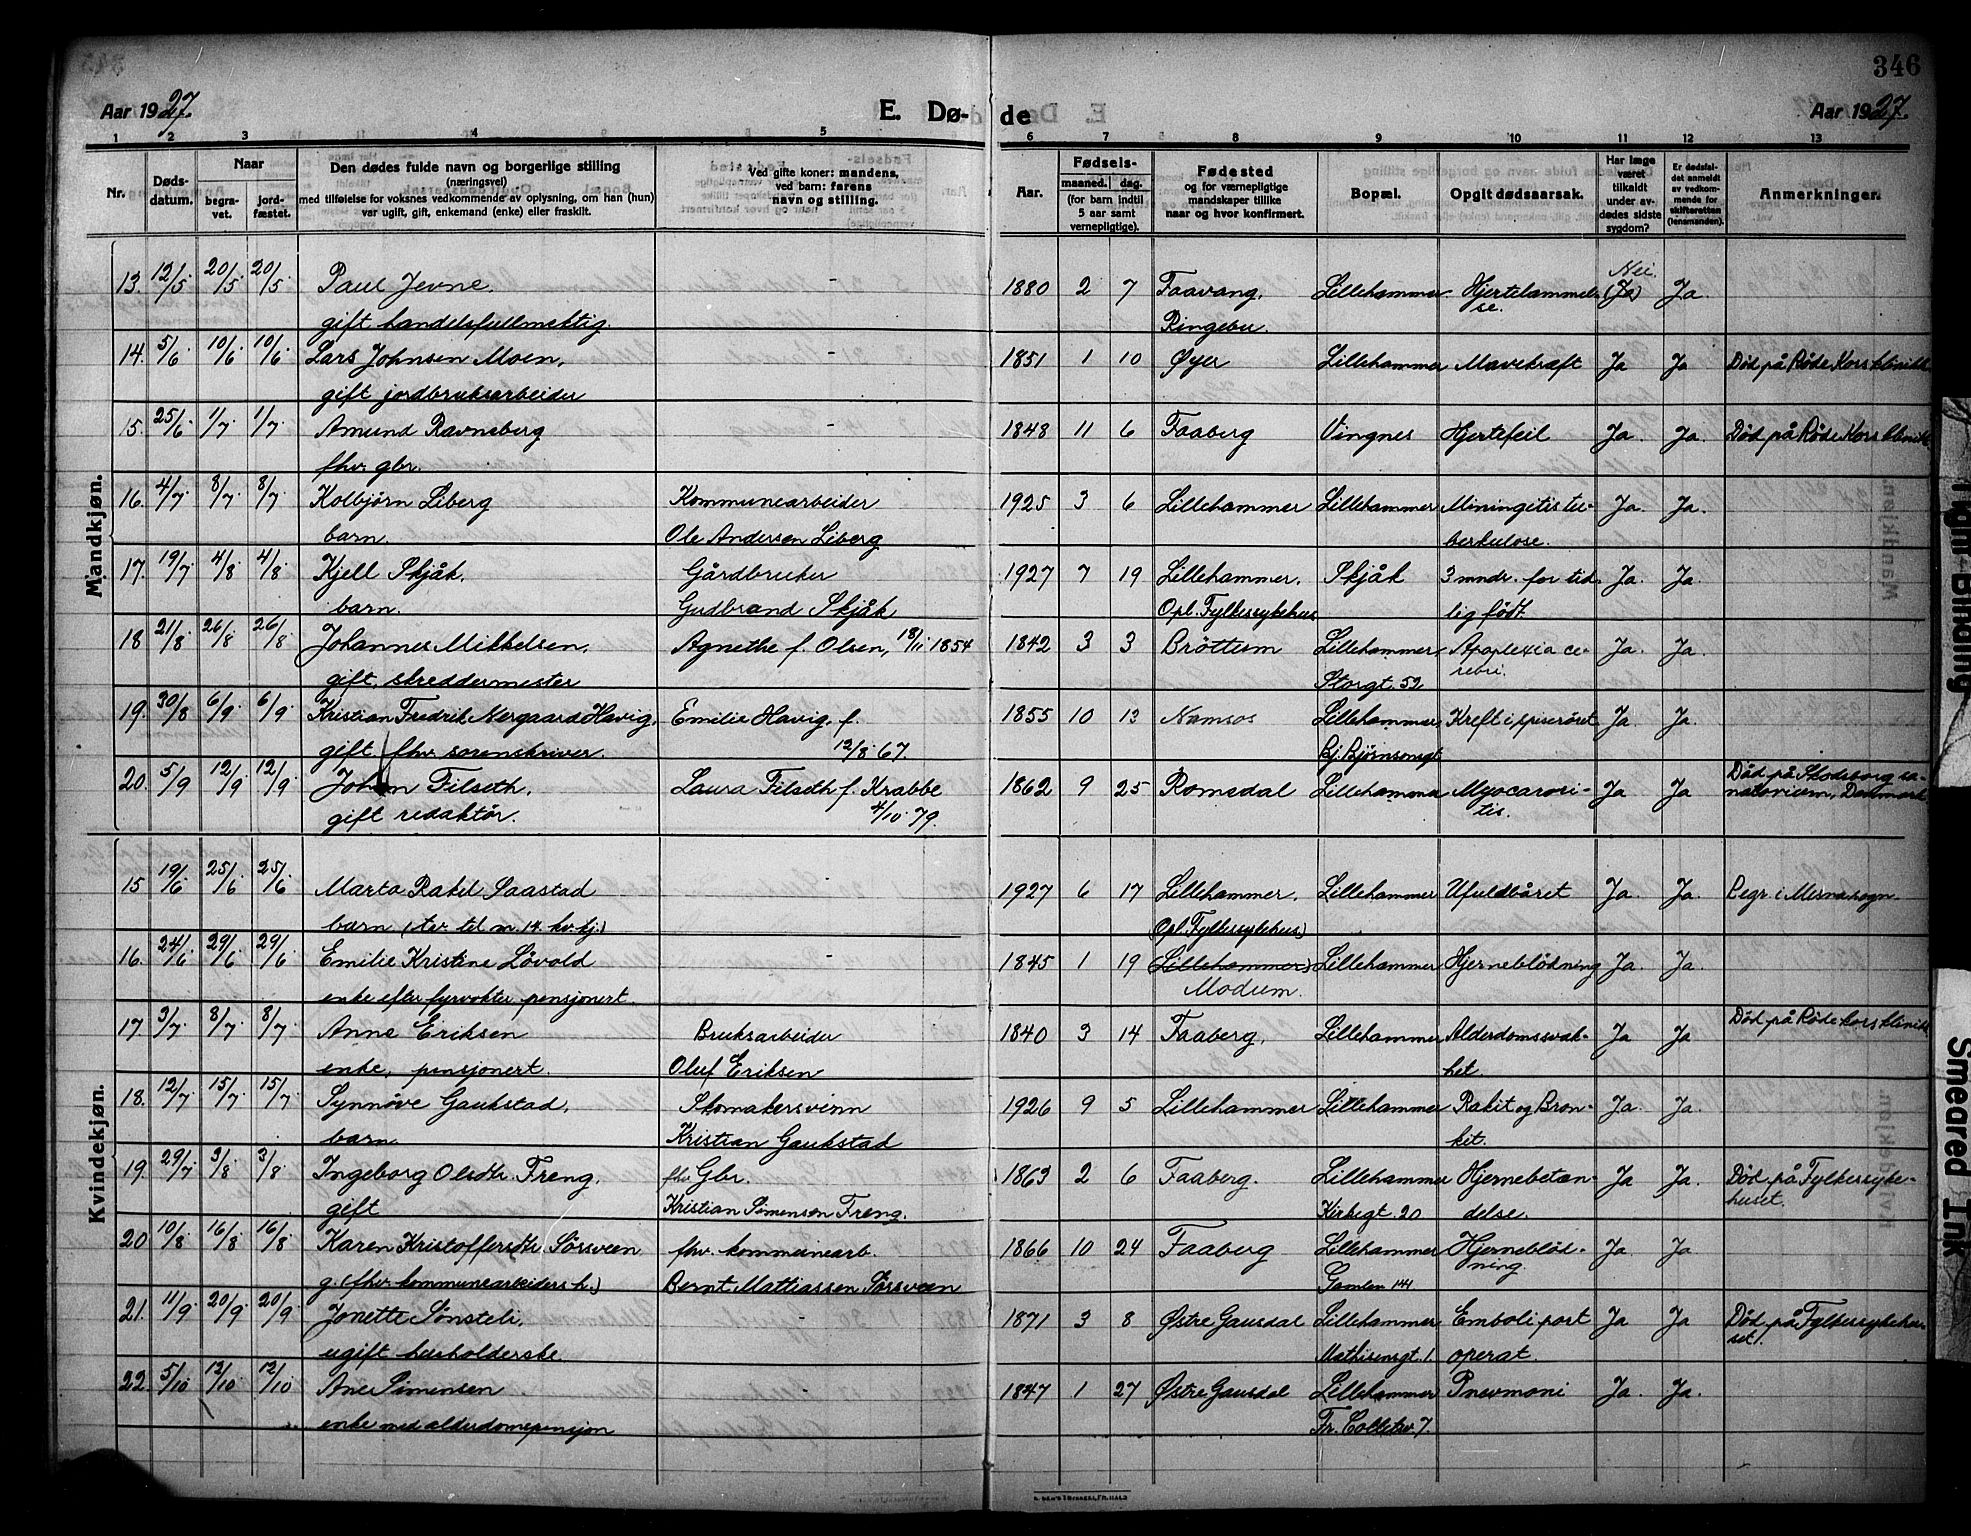 346
Aar 1927. E. Dø- de Aar 1927.
1 2 3 4 5 6 7 8 9 10 11 12 13
Nr. Døds-datum. Naar begra-vet. jord-fæstet. Den dødes fulde navn og borgerlige stilling (næringsvei) med tilføielse for voksnes vedkommende av oplysning, om han (hun) var ugift, gift, enkemand (enke) eller fraskilt. Ved gifte koner: mandens, ved barn: farens navn og stilling. Aar. Fødsels- maaned. dag. (for barn indtil 5 aar samt vernepligtige). Fødested og for værnepligtige mandskaper tillike naar og hvor konfirmert. Bopæl. Opgit dødsaarsak. Har læge været tilkaldt under av-dødes sidste sygdom? Er dødsfal-det anmeldt av vedkom-mende for skifteretten (lensmanden). Anmerkninger.
Mandkjøn.
13. 12/5 20/5 20/5 Paul Jevne, - 1880 2 7 Faavang, Lillehammer. Hjertelammel- Nei. (Ja) Ja.
gift handelsfullmektig. Ringebu. se.
14. 5/6 10/6 10/6 Lars Johnsen Moen, - 1851 1 10 Øyer Lillehammer Mavekræft Ja Ja Död på Röde Kors klinikk
gift jordbruksarbeider
15. 25/6 1/7 1/7 Amund Ravnsberg - 1848 11 6 Faaberg Vingnes Hjertefeil Ja. Ja. Död på Röde Kors klinikk
fhv. gbr.
16. 4/7 8/7 8/7 Kolbjørn Liberg Kommunearbeider 1925 3 6 Lillehammer Lillehammer Miningitis tu- Ja. Ja.
barn. Ole Andersen Liberg berkulose.
17. 19/7 4/8 4/8 Kjell Skjåk, Gårdbruker 1927 7 19 Lillehammer, Skjåk 3 mndr. for tid- Ja. Ja.
barn. Gudbrand Skjåk Opl. Fylkessykehus lig født.
18. 21/8 26/8 26/8 Johannes Mikkelsen, Agnethe f. Olsen, 18/11 1854 1842 3 3 Bröttum Lillehammer, Apoplexia ce- Ja. Ja.
gift, skreddermester Storgt. 52 rebri.
19. 30/8 6/9 6/9 Kristian Fredrik Nergaard Havig, Emilie Havig, f. 1855 10 13 Namsos Lillehammer, Kreft i spiseröret Ja. Ja.
gift, fhv. sorenskriver. 12/8 67. Bj. Bjørnsonsgt.
20. 5/9 12/9 12/9 Johan Filseth, Laura Filseth f. Krabbe 1862 9 25 Romsdal Lillehammer Myocarosi- Ja Ja Död på Skodsborg sa-
gift redaktør. 4/10 79. tis. natorium, Danmark
Kvindekjøn.
15 19/6 25/6 25/6 Marta Rakel Saastad 1927 6 17 Lillehammer, Lillehammer Ufuldbåret Ja. Ja. Begr. i Mesna sogn.
barn (tv. til nr. 14. kv. kj.) (Opl. Fylkessykehus)
16. 24/6 29/6 29/6 Emilie Kristine Lövold - 1845 1 19 (Lillehammer) Lillehammer Hjerneblödning Ja. Ja.
enke efter fyrvokter pensjonert. Modum.
17 3/7 8/7 8/7 Anne Eriksen Bruksarbeider 1840 3 14 Faaberg, Lillehammer Alderdomssvak- Ja Ja Död på Röde kors klinikk
enke, pensjonert. Oluf Eriksen het.
18. 12/7 15/7 15/7 Synnöve Gaukstad, Skomakersvenn 1926 9 5 Lillehammer Lillehammer Rakit og Bron- Ja. Ja.
barn Kristian Gaukstad kit.
19. 29/7 3/8 3/8 Ingeborg Olsdtr Freng, fhv. Gbr. 1863 2 6 Faaberg. Lillehammer Hjernebetæn- Ja Ja Död på Fylkessyke-
gift Kristian Simensen Freng. Kirkegt. 20 delse. huset.
20 10/8 16/8 16/8 Karen Kristoffersdtr. Sörsveen fhv. kommunearb. 1866 10 24 Faaberg Lillehammer Hjerneblöd- Ja Ja.
g. (fhv. kommunearbeiders h.) Bernt Mattiassen Sörsveen Gamlev. 141 ning.
21. 11/9 20/9 20/9 Jonette Sönsteli, - 1871 3 8 Østre Gausdal Lillehammer Emboli post Ja Ja Död på Fylkessykehu-
ugift husholderske. Mathisensgt. 1. operat. set.
22 5/10 12/10 12/10 Ane Simensen 1847 1 27 Østre Gausdal Lillehammer Pnevmoni Ja. Ja.
enke med alderdomspensjon Fr. Colletsv. 7.
Tight Binding
Smeared Ink